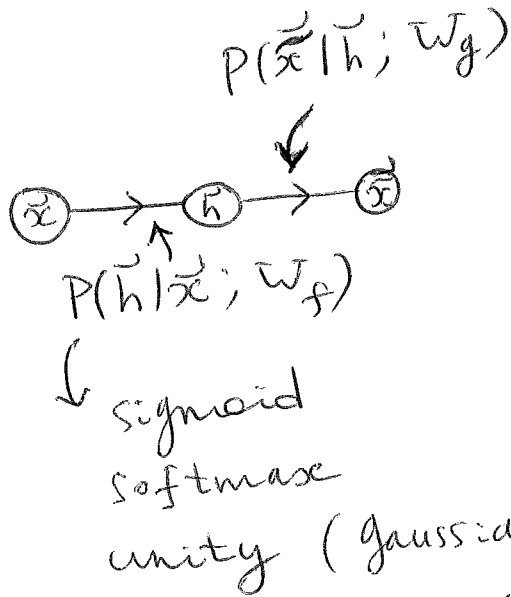 P(x̃ | h̃; W_g)
x̃ h̃ x̃
P(h̃ | x̃; W_f)
sigmoid
softmax
unity (gaussia